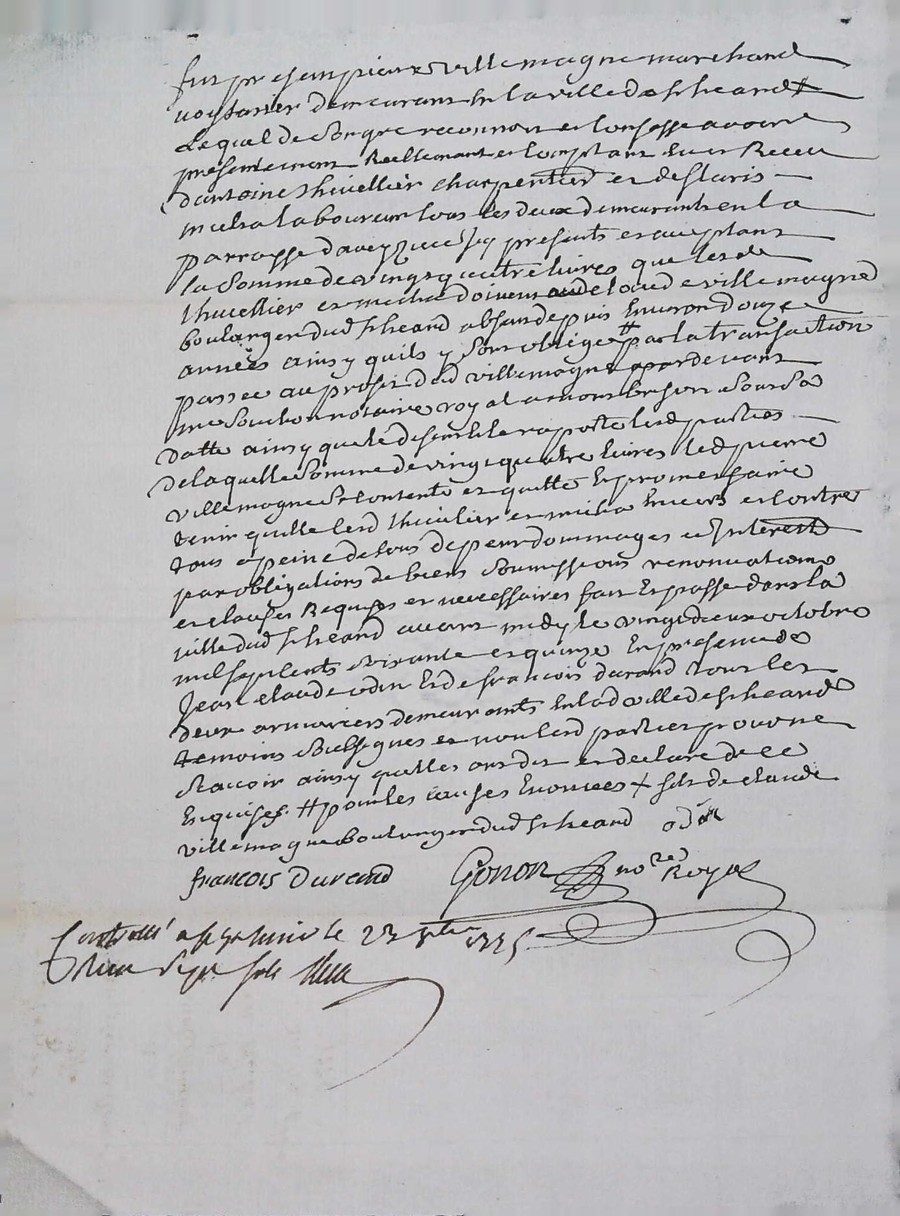 fut present pierre villemagne marchand
voyturier demeurant En la ville de st heand #
Lequel de son gre reconnoit et confesse avoir
presentement Reellement et comptant Eu et Receu
d'antoine thivellier charpentier et de
micha laboureur tous les deux demeurants en la
parroisse d'aveyzieu presents et acceptant
la somme de vingt quatre livres que lesd
thivellier et micha doivent a claude villemagne
boulanger dud st heand absent depuis Environ douze
années ainsy quils y sont obligé # par la transaction
passée au profit dud villemagne pardevant
me Souchon notaire royal a son
datte ainsy que le de semble raporte lesd parties
de laquelle somme de vingt quatre livres led pierre
villemagne se contente et quitte Et promet faire
tenir quitte lesd thivelier et micha Envers et contre
tous a peine de tous depens dommages et Interests
par obligations de biens soumissions renonciations
et clauses Requises et necessaires fait Et passé dans la
ville dud st heand avant midy le vingt deux octobre
mil sept cents soixante et quinze En presence de
Jean claude odin Et de francois durand tous les
deux armuriers demeurants En lad ville de st heand
temoins Soussignes et non lesd parties pour ne
scavoir ainsy quelles ont dit et declaré de ce
Enquises # pour les causes Enoncées + fils de claude
villemagne boulanger dud st heand odin
francois Durand Gonon nore Royal
Controllé a st le 23 8bre 1775
Recu sept sols